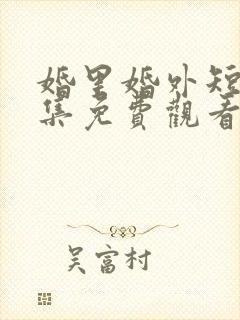 婚里婚外短
集免費觀看
吴富村